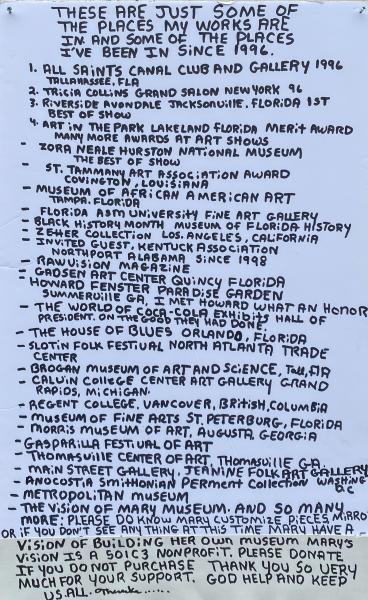 THESE ARE JUST SOME OF
THE PLACES MY WORKS ARE
IN AND SOME OF THE PLACES
I'VE BEEN IN SINCE 1996.
1. ALL SAINTS CANAL CLUB AND GALLERY 1996
TALLAHASSEE, FLA
2. TRICIA COLLINS GRAND SALON NEW YORK 96
3. RIVERSIDE AVONDALE JACKSONVILLE. FLORIDA 1ST
BEST OF SHOW
4. ART IN THE PARK LAKELAND FLORIDA MERIT AWARD
MANY MORE AWARDS AT ART SHOWS
- ZORA NEALE HURSTON NATIONAL MUSEUM
THE BEST OF SHOW
- ST. TAMMANY ART ASSOCIATION AWARD
COVINGTON, LOUISIANA
- MUSEUM OF AFRICAN AMERICAN ART
TAMPA. FLORIDA
- FLORIDA A&M UNIVERSITY FINE ART GALLERY
- BLACK HISTORY MONTH MUSEUM OF FLORIDA HISTORY
- ZEHER COLLECTION LOS. ANGELES, CALIFORNIA
- INVITED GUEST, KENTUCK ASSOCIATION
NORTHPORT ALABAMA SINCE 1998
- RAW VISION MAGAZINE
- GADSEN ART CENTER QUINCY FLORIDA
- HOWARD FENSTER PARADISE GARDEN
SUMMERVILLE GA, I MET HOWARD WHAT AN HONOR
- THE WORLD OF COCA-COLA EXHIBITS HALL OF
PRESIDENT. ON THE GOOD THEY HAD DONE,
- THE HOUSE OF BLUES ORLANDO, FLORIDA
- SLOTIN FOLK FESTIVAL NORTH ATLANTA TRADE
CENTER
- BROGAN MUSEUM OF ART AND SCIENCE, Tall, FLA
- CALVIN COLLEGE CENTER ART GALLERY GRAND
RAPIDS, MICHIGAN.
- REGENT COLLEGE, VANCOVER, BRITISH, COLUMBIA
- MUSEUM OF FINE ARTS ST. PETERBURG, FLORIDA
- MORRIS MUSEUM OF ART, AUGUSTA, GEORGIA
- GASPARILLA FESTIVAL OF ART
- THOMASVILLE CENTER OF ART, THOMASVILLE GA.
- MAIN STREET GALLERY, JEANINE FOLK ART GALLERY
- ANOCOSTIA SMITHONIAN PERMENT COLLECTION WASHING
D.C
- METROPOLITAN MUSEUM
- THE VISION OF MARY MUSEUM. AND SO MANY
MORE: PLEASE DO KNOW MARY CUSTOMIZE PIECES MIRRO
OR IF YOU DON'T SEE ANY THING AT THIS TIME MARY HAVE A
VISION OF BUILDING HER OWN MUSEUM MARY'S
VISION IS A 501C3 NONPROFIT. PLEASE DONATE
IF YOU DO NOT PURCHASE THANK YOU SO VERY
MUCH FOR YOUR SUPPORT. GOD HELP AND KEEP
US ALL. Thanks......